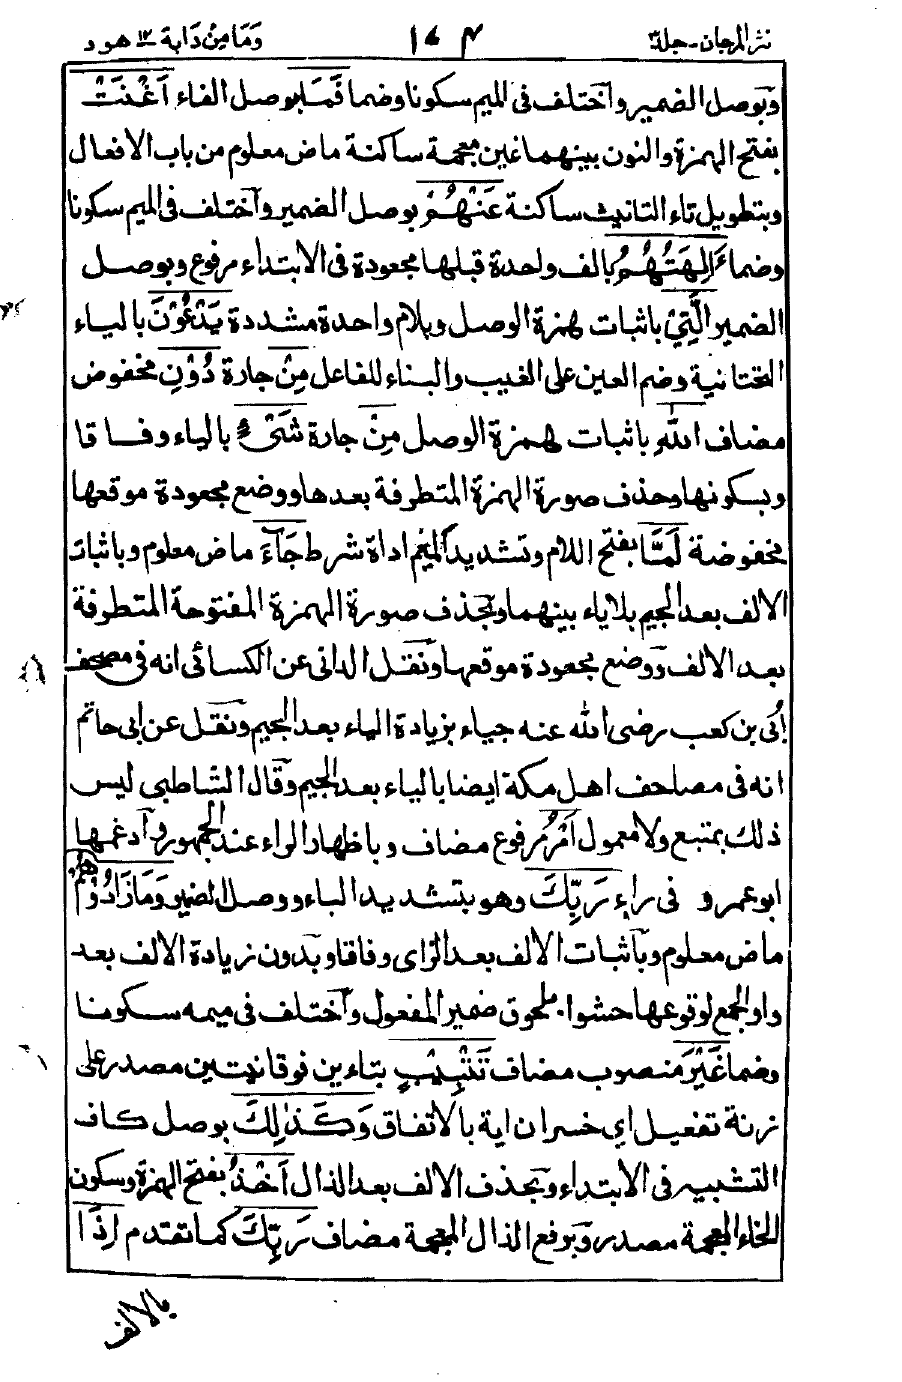 نثر المرجان - جلد ٣ ١٦٤ وما من دابة ١٢ هود
وبوصل الضمير وآختلف فى الميم سكونا وضما فَمَا بوصل الفاء أَغْنَتْ
بفتح الهمزة والنون بينهما غين معجمة ساكنة ماض معلوم من باب الافعال
وبتطويل تاء التانيث ساكنة عَنْهُمْ بوصل الضمير وآختلف فى الميم سكونا
وضما ءَالِهَتُهُمْ بالف واحدة قبلها مجعودة فى الابتداء مرفوع وبوصل
الضمير الَّتِىْ باثبات همزة الوصل وبلام واحدة مشددة يَدْعُوْنَ بالياء
التحتانية وضم العين على الغيب والبناء للفاعل مِنْ جارة دُوْنِ مخفوض
مضاف اللهِ باثبات همزة الوصل مِنْ جارة شَىْءٍ بالياء وفاقا
وبسكونها وحذف صورة الهمزة المتطرفة بعدها ووضع مجعودة موقعها
مخفوضة لَمَّا بفتح اللام وتشديد الميم اداة شرط جَآءَ ماض معلوم وباثبات
الالف بعد الجيم بلا ياء بينهما وبحذف صورة الهمزة المفتوحة المتطرفة
بعد الالف ووضع مجعودة موقعها ونقل الدانى عن الكسائى انه فى مصحف
أُبى بن كعب رضى الله عنه جياء بزيادة الياء بعد الجيم ونقل عن ابى حاتم
انه فى مصاحف اهل مكة ايضا بالياء بعد الجيم وقال الشاطبى ليس
ذلك بمتبع ولا معمول أَمْرُ مرفوع مضاف وباظهار الراء عند الجمهور وآدغمها
ابو عمرو فى راء رَبِّكَ وهو بتشديد الباء ووصل الضمير وَمَا زَادُوْهُمْ
ماض معلوم وبآثبات الالف بعد الزاى وفاقا وبدون زيادة الالف بعد
واو الجمع لوقوعها حشوا بلحوق ضمير المفعول وآختلف فى ميمه سكونا
وضما غَيْرَ منصوب مضاف تَتْبِيْبٍ بتاءين فوقانيتين مصدر على
زنة تفعيل اي خسران اية بالاتفاق وَكَذٰلِكَ بوصل كاف
التشبيه فى الابتداء وبحذف الالف بعد الذال أَخْذُ بفتح الهمزة وسكون
الخاء المعجمة مصدر وبرفع الذال المعجمة مضاف رَبِّكَ كما تقدم إِذَا
بالالف